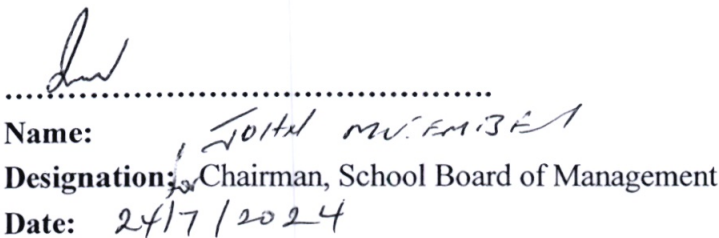 Name: JOHN
Designation: for Chairman, School Board of Management
Date: 24/7/2024